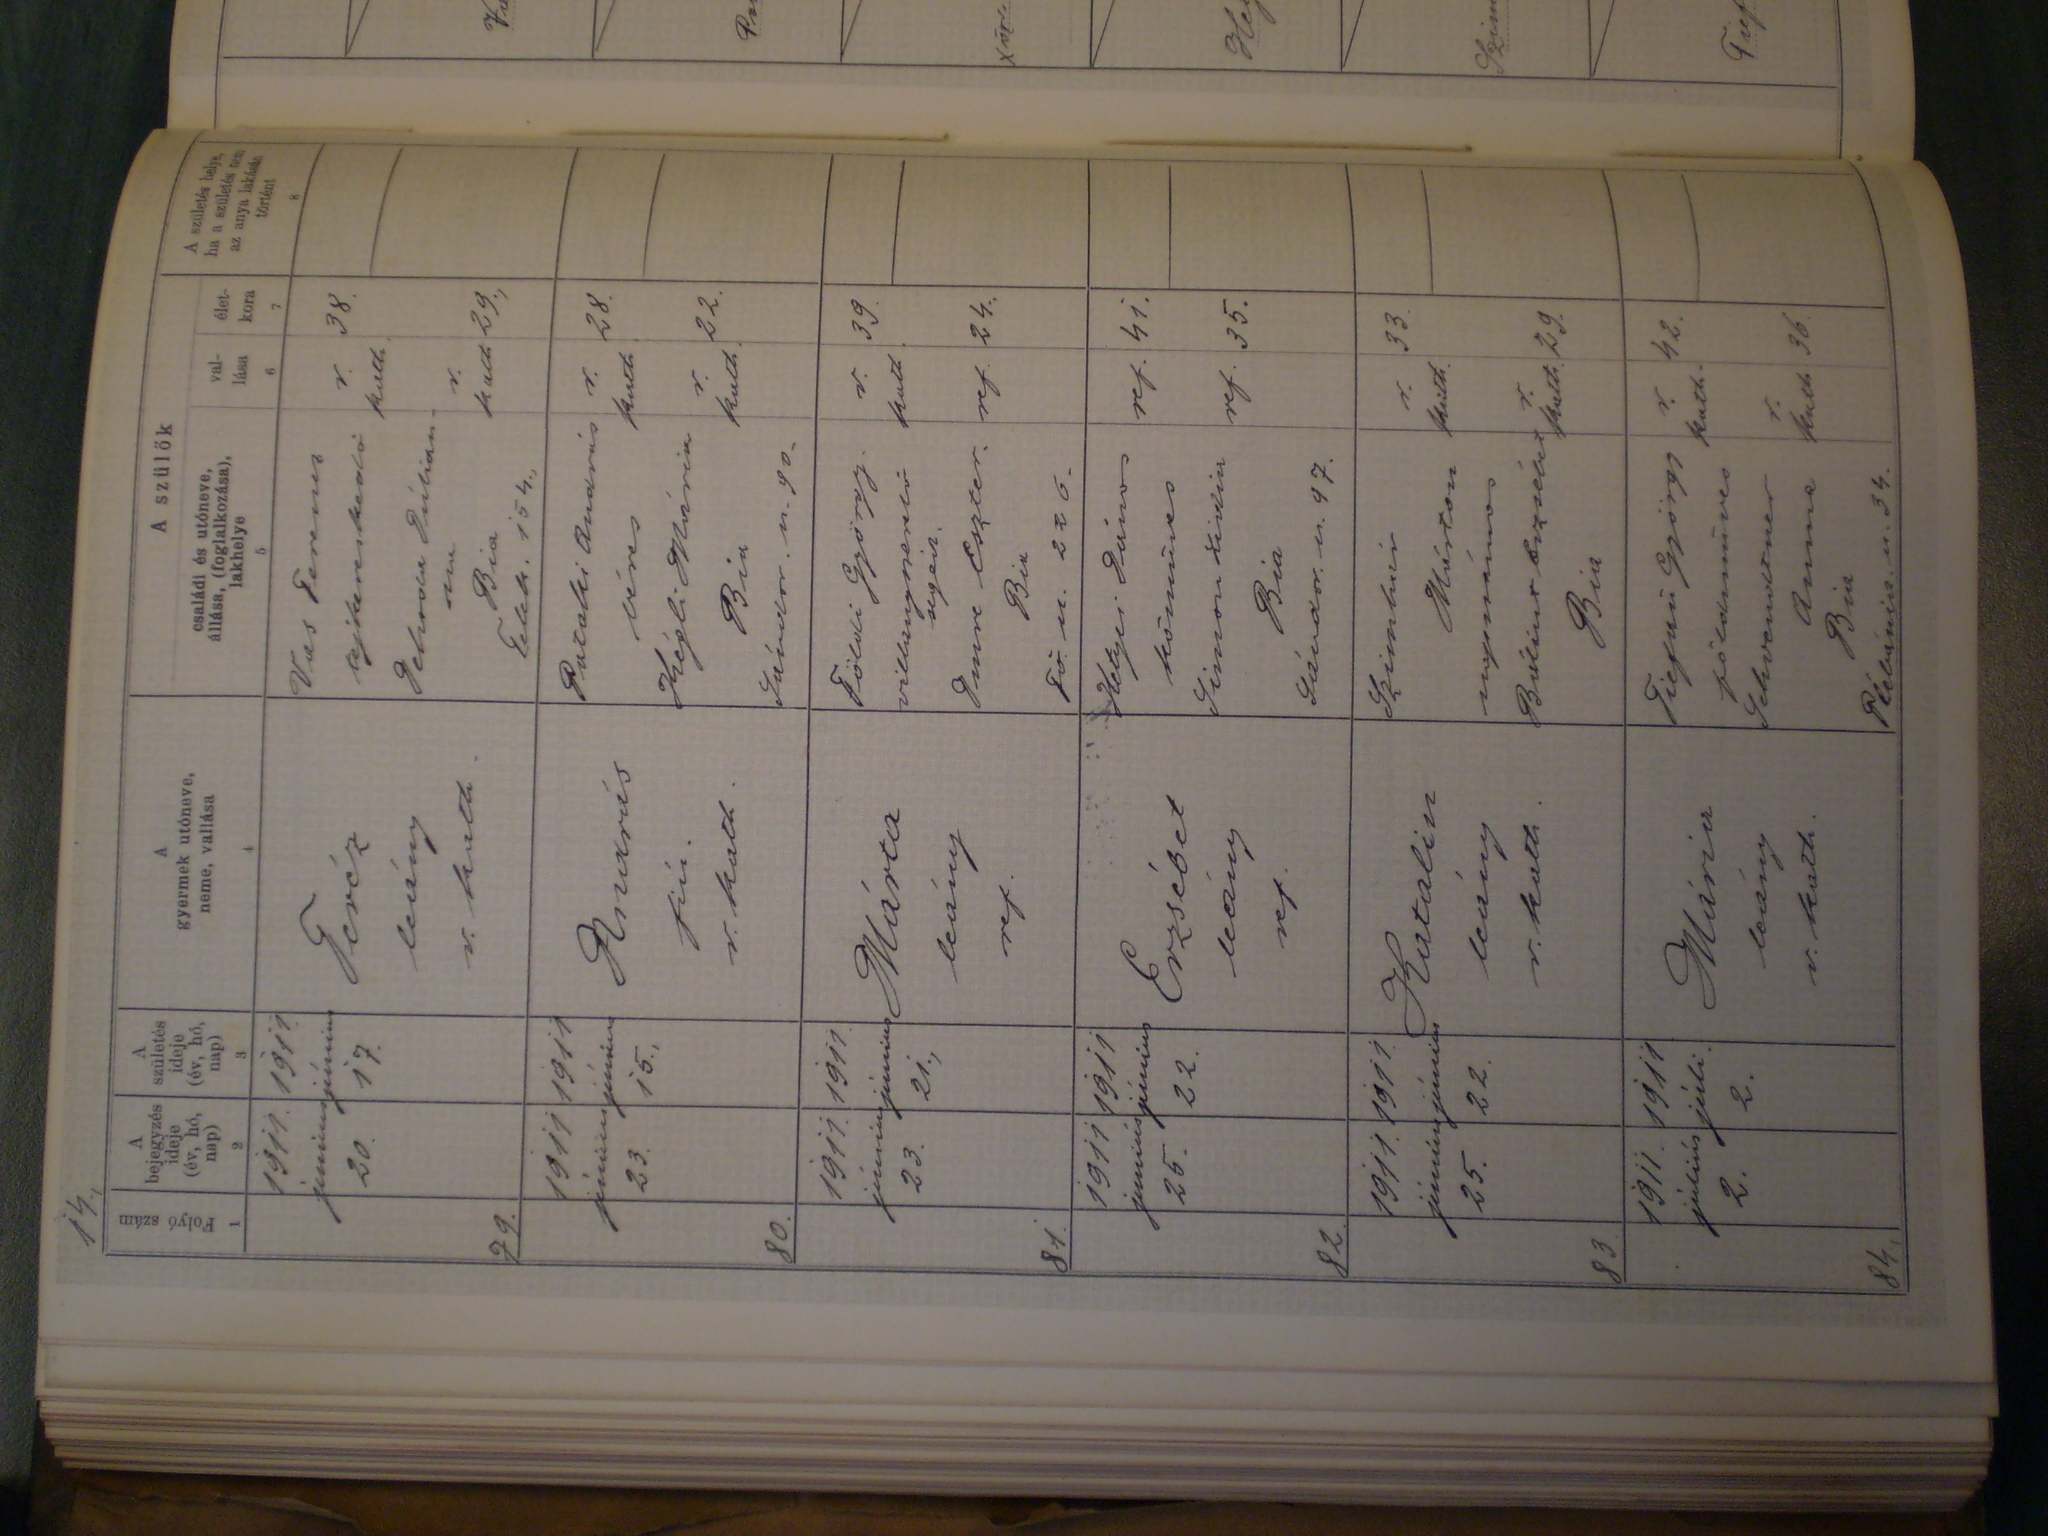 14.,
A szülők
Folyó szám
A bejegyzés ideje (év, hó, nap)
A születés ideje (év, hó, nap)
A gyermek utóneve, neme, vallása
családi és utóneve, állása, (foglalkozása), lakhelye
val-lása
élet-kora
A születés helye, ha a születés nem az anya lakásán történt
1
2
3
4
5
6
7
8
79.
1911.
junius
20.
1911
június
17.
Teréz
leány
r. kath.
Vas Ferenc
tejkereskedő
r. kath.
38.
r. kath
29.,
Bia
Telek. 154.,
80.
1911
június
23.
1911
június
15.,
András
fiú.
r. kath.
Pataki András
r. kath.
28.
Kégli Mária
r. kath.
22.
Bia
Sándor. u. 90.
81.
1911.
június
23.
1911.
június
21.,
Márta
leány
ref.
Földi György.
villanyszerelő
segéd.
r. kath.
39.
Imre Eszter.
ref.
24.
Bia
Fő. u. 226.
82.
1911
junius
25.
1911
június
22.
Erzsébet
leány
ref.
Helyei János
kőműves
ref.
41.
Simon Lidia
ref.
35.
Bia
Sándor. u. 97.
83.
1911.
június
25.
1911.
június
22.
Katalin
leány
r. kath.
Márton
napszámos
r. kath.
33.
Bálint Erzsébet
r. kath.
29.
Bia
84.,
1911.
július
2.
1911
júli.
2.
Mária
leány
r. kath.
György
földmüves
r. kath.
42.
Anna
r. kath.
36.
Bia
Plébánia. u. 34.